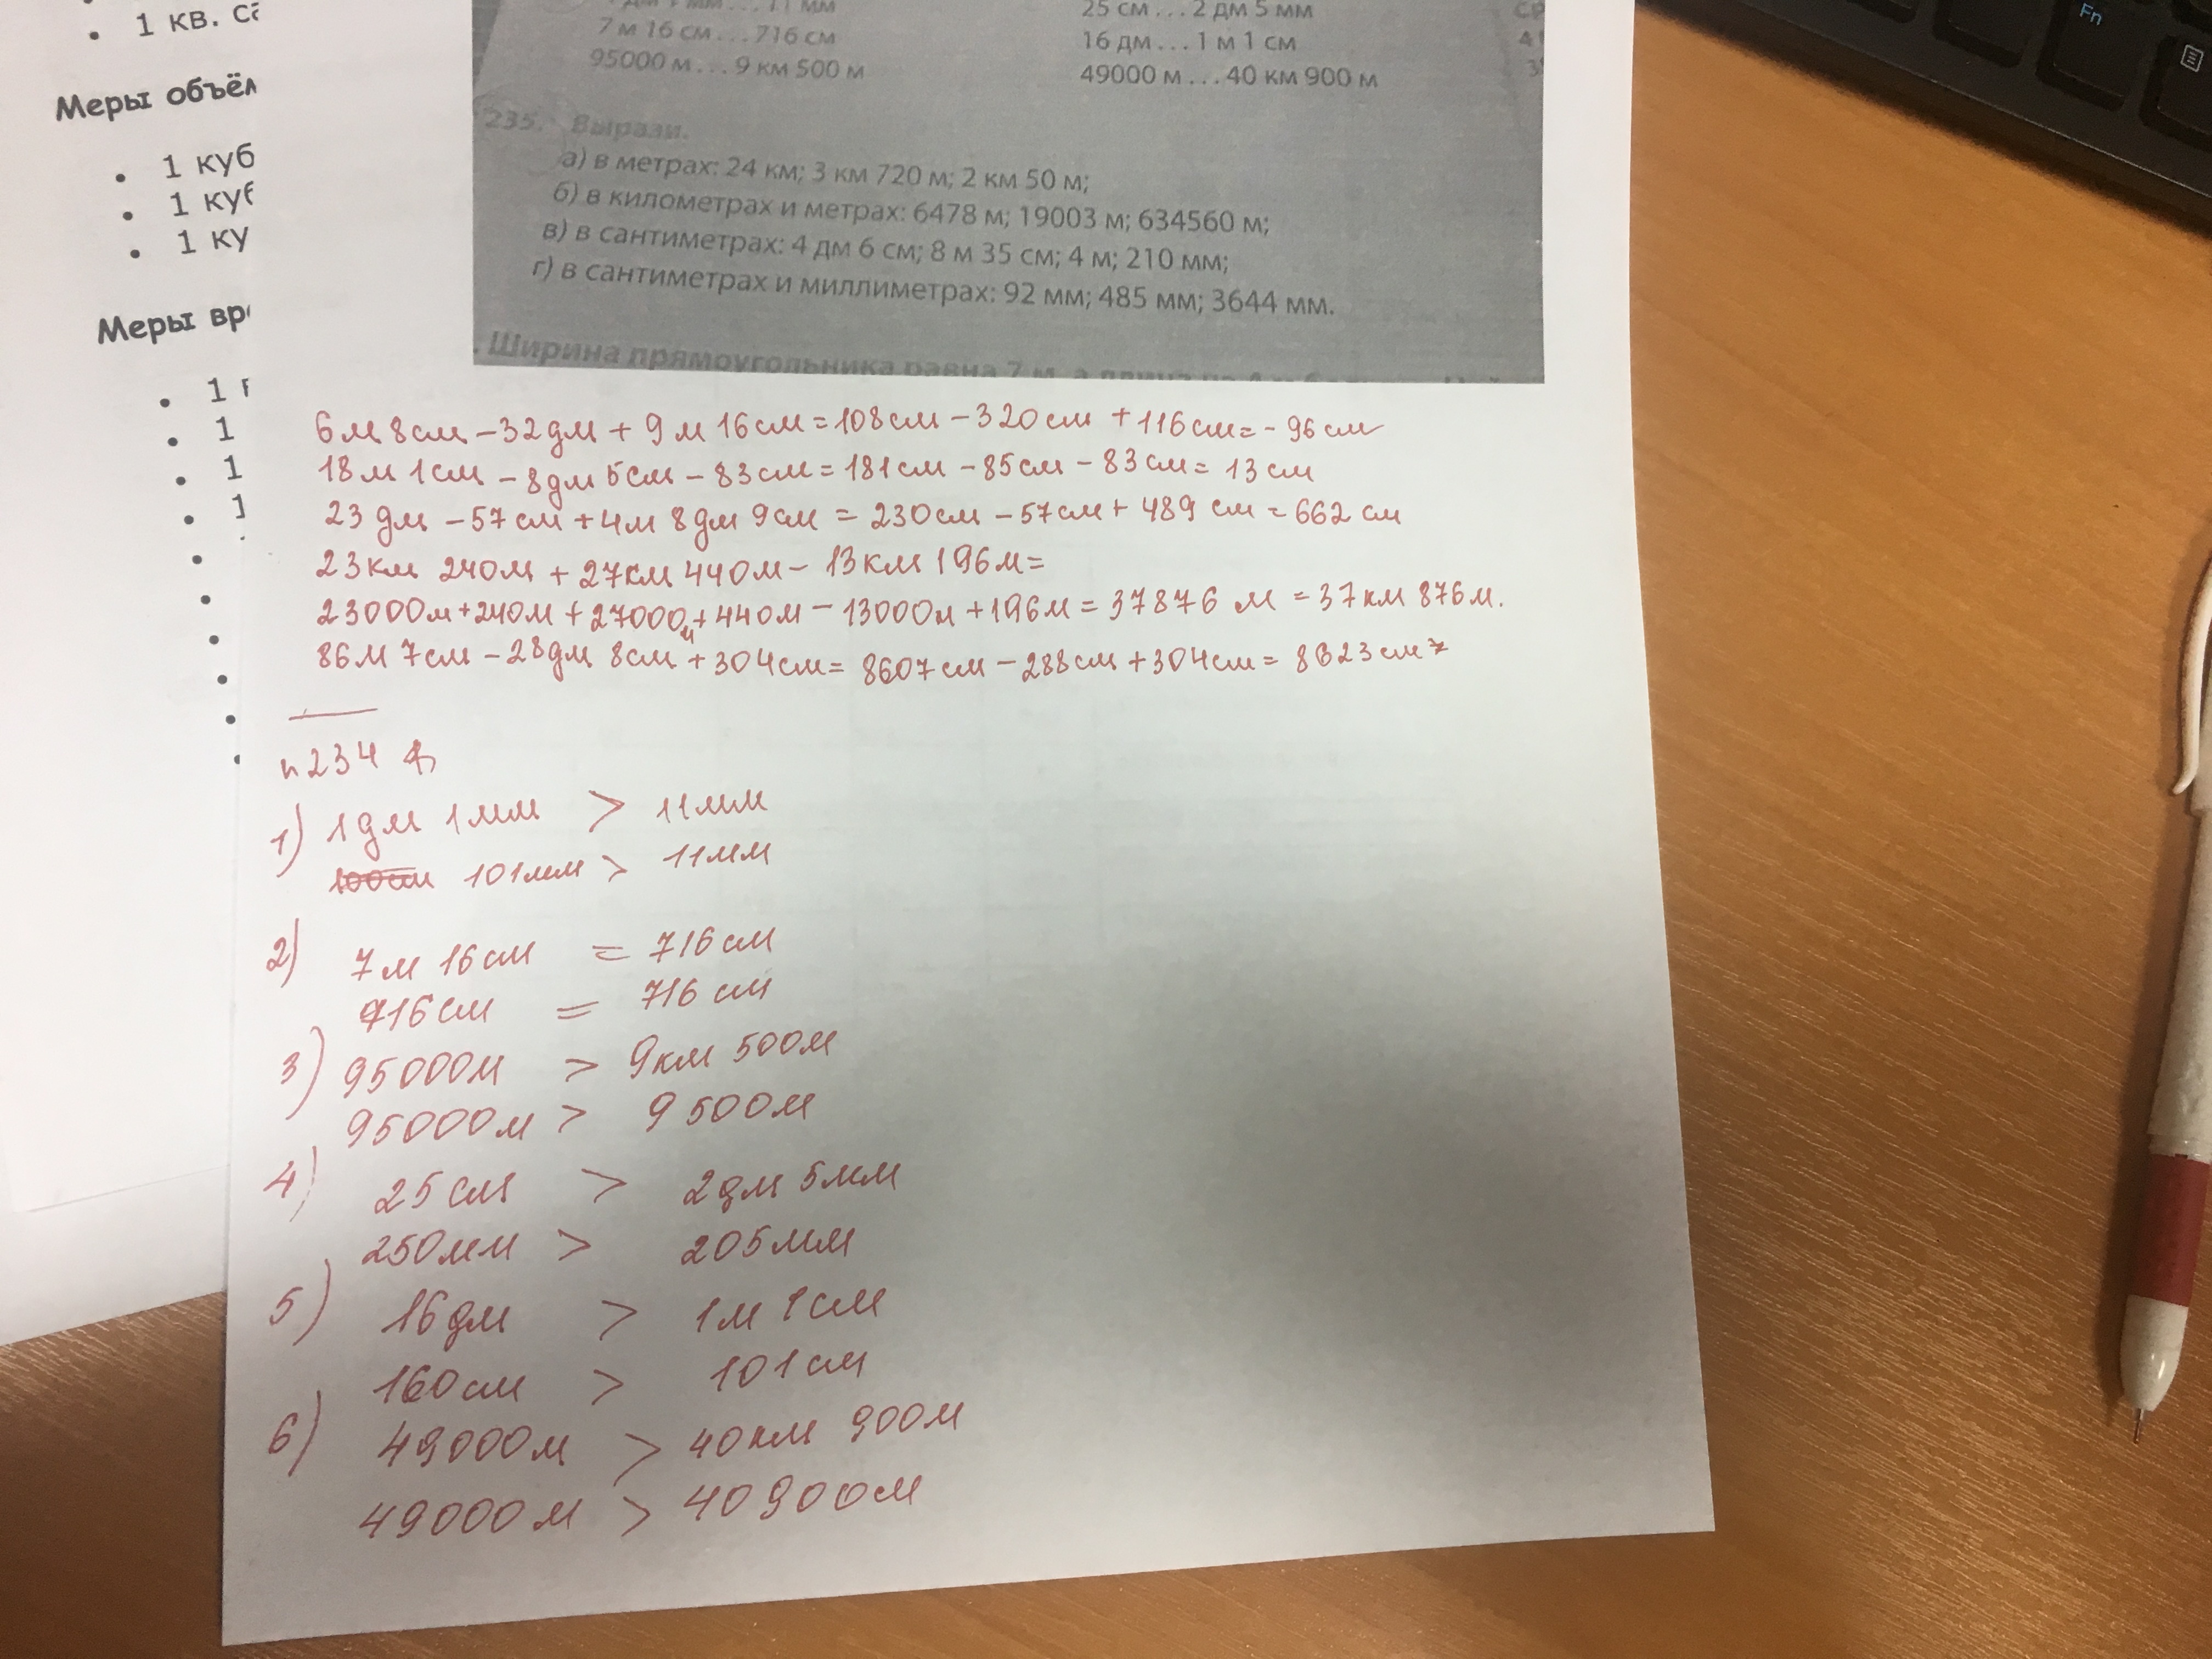 1 кв.
Меры
1 куб
1 куб
1 ку
Меры
1
1
1
1
11 мм
7 м 16 см . . . 716 см
95000 м . . . 9 км 500 м
25 см . . . 2 дм 5 мм
16 дм . . . 1 м 1 см
49000 м . . . 40 км 900 м
235. Вырази.
а) в метрах: 24 км; 3 км 720 м; 2 км 50 м;
б) в километрах и метрах: 6478 м; 19003 м; 634560 м;
в) в сантиметрах: 4 дм 6 см; 8 м 35 см; 4 м; 210 мм;
г) в сантиметрах и миллиметрах: 92 мм; 485 мм; 3644 мм.
Ширина прямоугольника равна 7 м, а длина
6м 8см – 32дм + 9м 16см = 108см – 320см + 116см = - 96см
18м 1см – 8дм 5см – 83см = 181см – 85см – 83см = 13см
23 дм – 57см + 4м 8дм 9см = 230см – 57см + 489 см = 662 см
23км 240м + 27км 440м – 13км 196м =
23000м + 240м + 27000м + 440м – 13000м + 196м = 37876 м = 37км 876м.
86м 7см – 28дм 8см + 304см = 8607см – 288см + 304см = 8623см
n 234
1) 1дм 1мм > 11мм
101мм > 11мм
2) 7м 16см = 716см
716см = 716см
3) 95000м > 9км 500м
95000м > 9500м
4) 25см > 2дм 5мм
250мм > 205мм
5) 16дм > 1м 1см
160см > 101см
6) 49000м > 40км 900м
49000м > 40900м
Fn